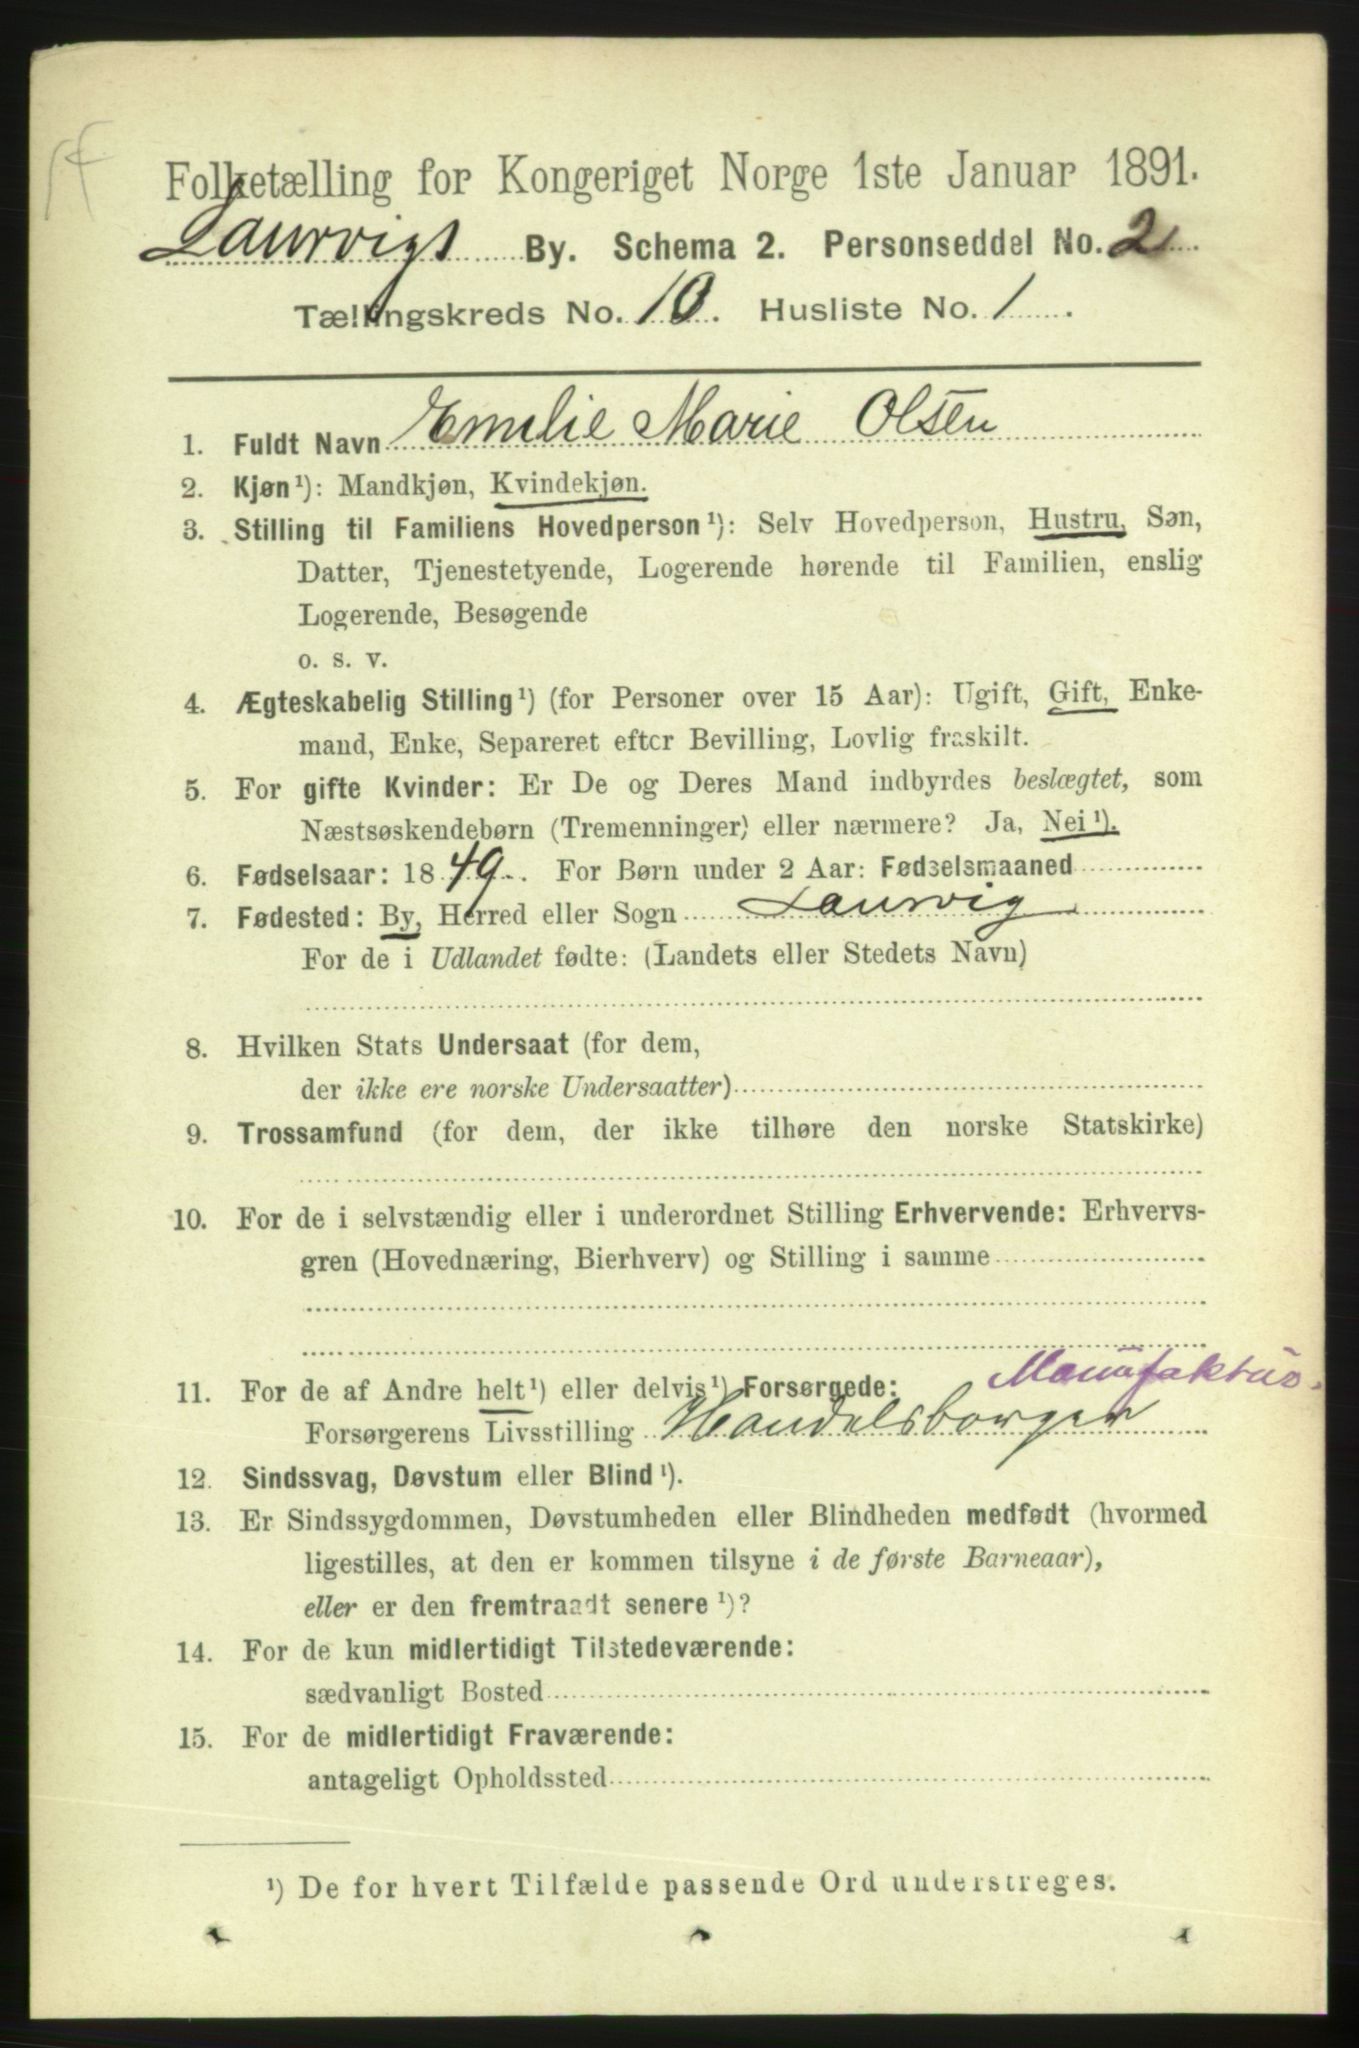 Folketælling for Kongeriget Norge 1ste Januar 1891.
Laurvigs By. Schema 2. Personseddel No. 2
Tællingskreds No. 10. Husliste No. 1.
1. Fuldt Navn Emelie Marie Olsen
2. Kjøn¹): Mandkjøn, Kvindekjøn.
3. Stilling til Familiens Hovedperson¹): Selv Hovedperson, Hustru, Søn,
Datter, Tjenestetyende, Logerende hørende til Familien, enslig
Logerende, Besøgende
o. s. v.
4. Ægteskabelig Stilling¹) (for Personer over 15 Aar): Ugift, Gift, Enke-
mand, Enke, Separeret efter Bevilling, Lovlig fraskilt.
5. For gifte Kvinder: Er De og Deres Mand indbyrdes beslægtet, som
Næstsøskendebørn (Tremenninger) eller nærmere? Ja, Nei¹).
6. Fødselsaar: 1849. For Børn under 2 Aar: Fødselsmaaned
7. Fødested: By, Herred eller Sogn Laurvig
For de i Udlandet fødte: (Landets eller Stedets Navn)
8. Hvilken Stats Undersaat (for dem,
der ikke ere norske Undersaatter)
9. Trossamfund (for dem, der ikke tilhøre den norske Statskirke)
10. For de i selvstændig eller i underordnet Stilling Erhvervende: Erhvervs-
gren (Hovednæring, Bierhverv) og Stilling i samme
Manufaktur.
11. For de af Andre helt¹) eller delvis¹) Forsørgede:
Forsørgerens Livsstilling Handelsborger
12. Sindssvag, Døvstum eller Blind¹).
13. Er Sindssygdommen, Døvstumheden eller Blindheden medfødt (hvormed
ligestilles, at den er kommen tilsyne i de første Barneaar),
eller er den fremtraadt senere¹)?
14. For de kun midlertidigt Tilstedeværende:
sædvanligt Bosted
15. For de midlertidigt Fraværende:
antageligt Opholdssted
¹) De for hvert Tilfælde passende Ord understreges.